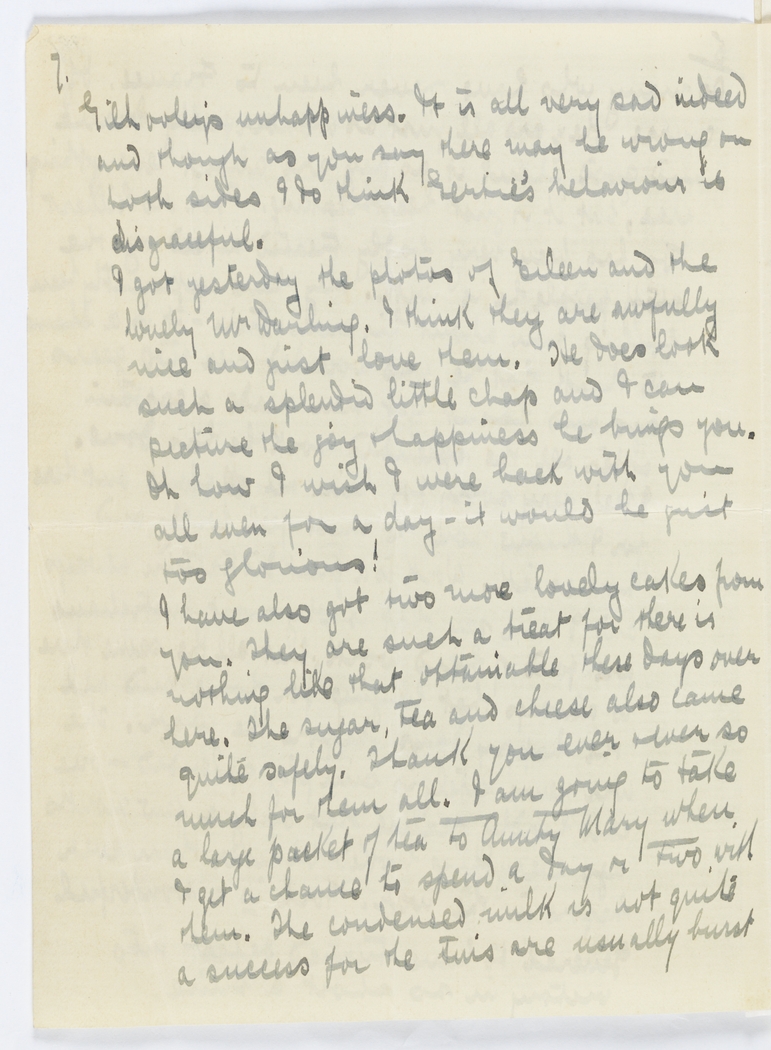 7.
Gilhooley's unhappiness. It is all very sad indeed
and though as you say there may be wrong on
both sides I do think Gertie's behaviour is
disgraceful.
I got yesterday the photos of Eileen and the
lovely Mr Darling. I think they are awfully
nice and just love them. He does look
such a splendid little chap and I can
picture the joy & happiness he brings you.
Oh how I wish I were back with you
all even for a day – it would be just
too glorious!
I have also got two more lovely cakes from
you. They are such a treat for there is
nothing like that obtainable these days over
here. The sugar, tea and cheese also came
quite safely. Thank you ever & ever so
much for them all. I am going to take
a large packet of tea to Aunty Mary when
I get a chance to spend a day or two with
them. The condensed milk is not quite
a success for the tins are usually burst